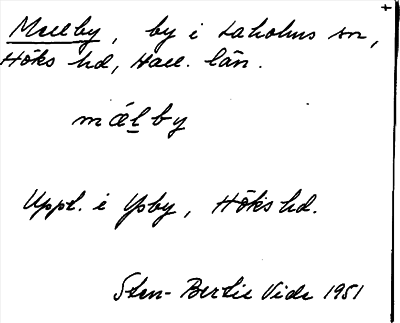 +
Mellby, by i Laholms sn,
Höks hd, Hall. län.
mǽḻby
Uppt. i Ysby, Höks hd.
Sten-Bertil Vide 1951